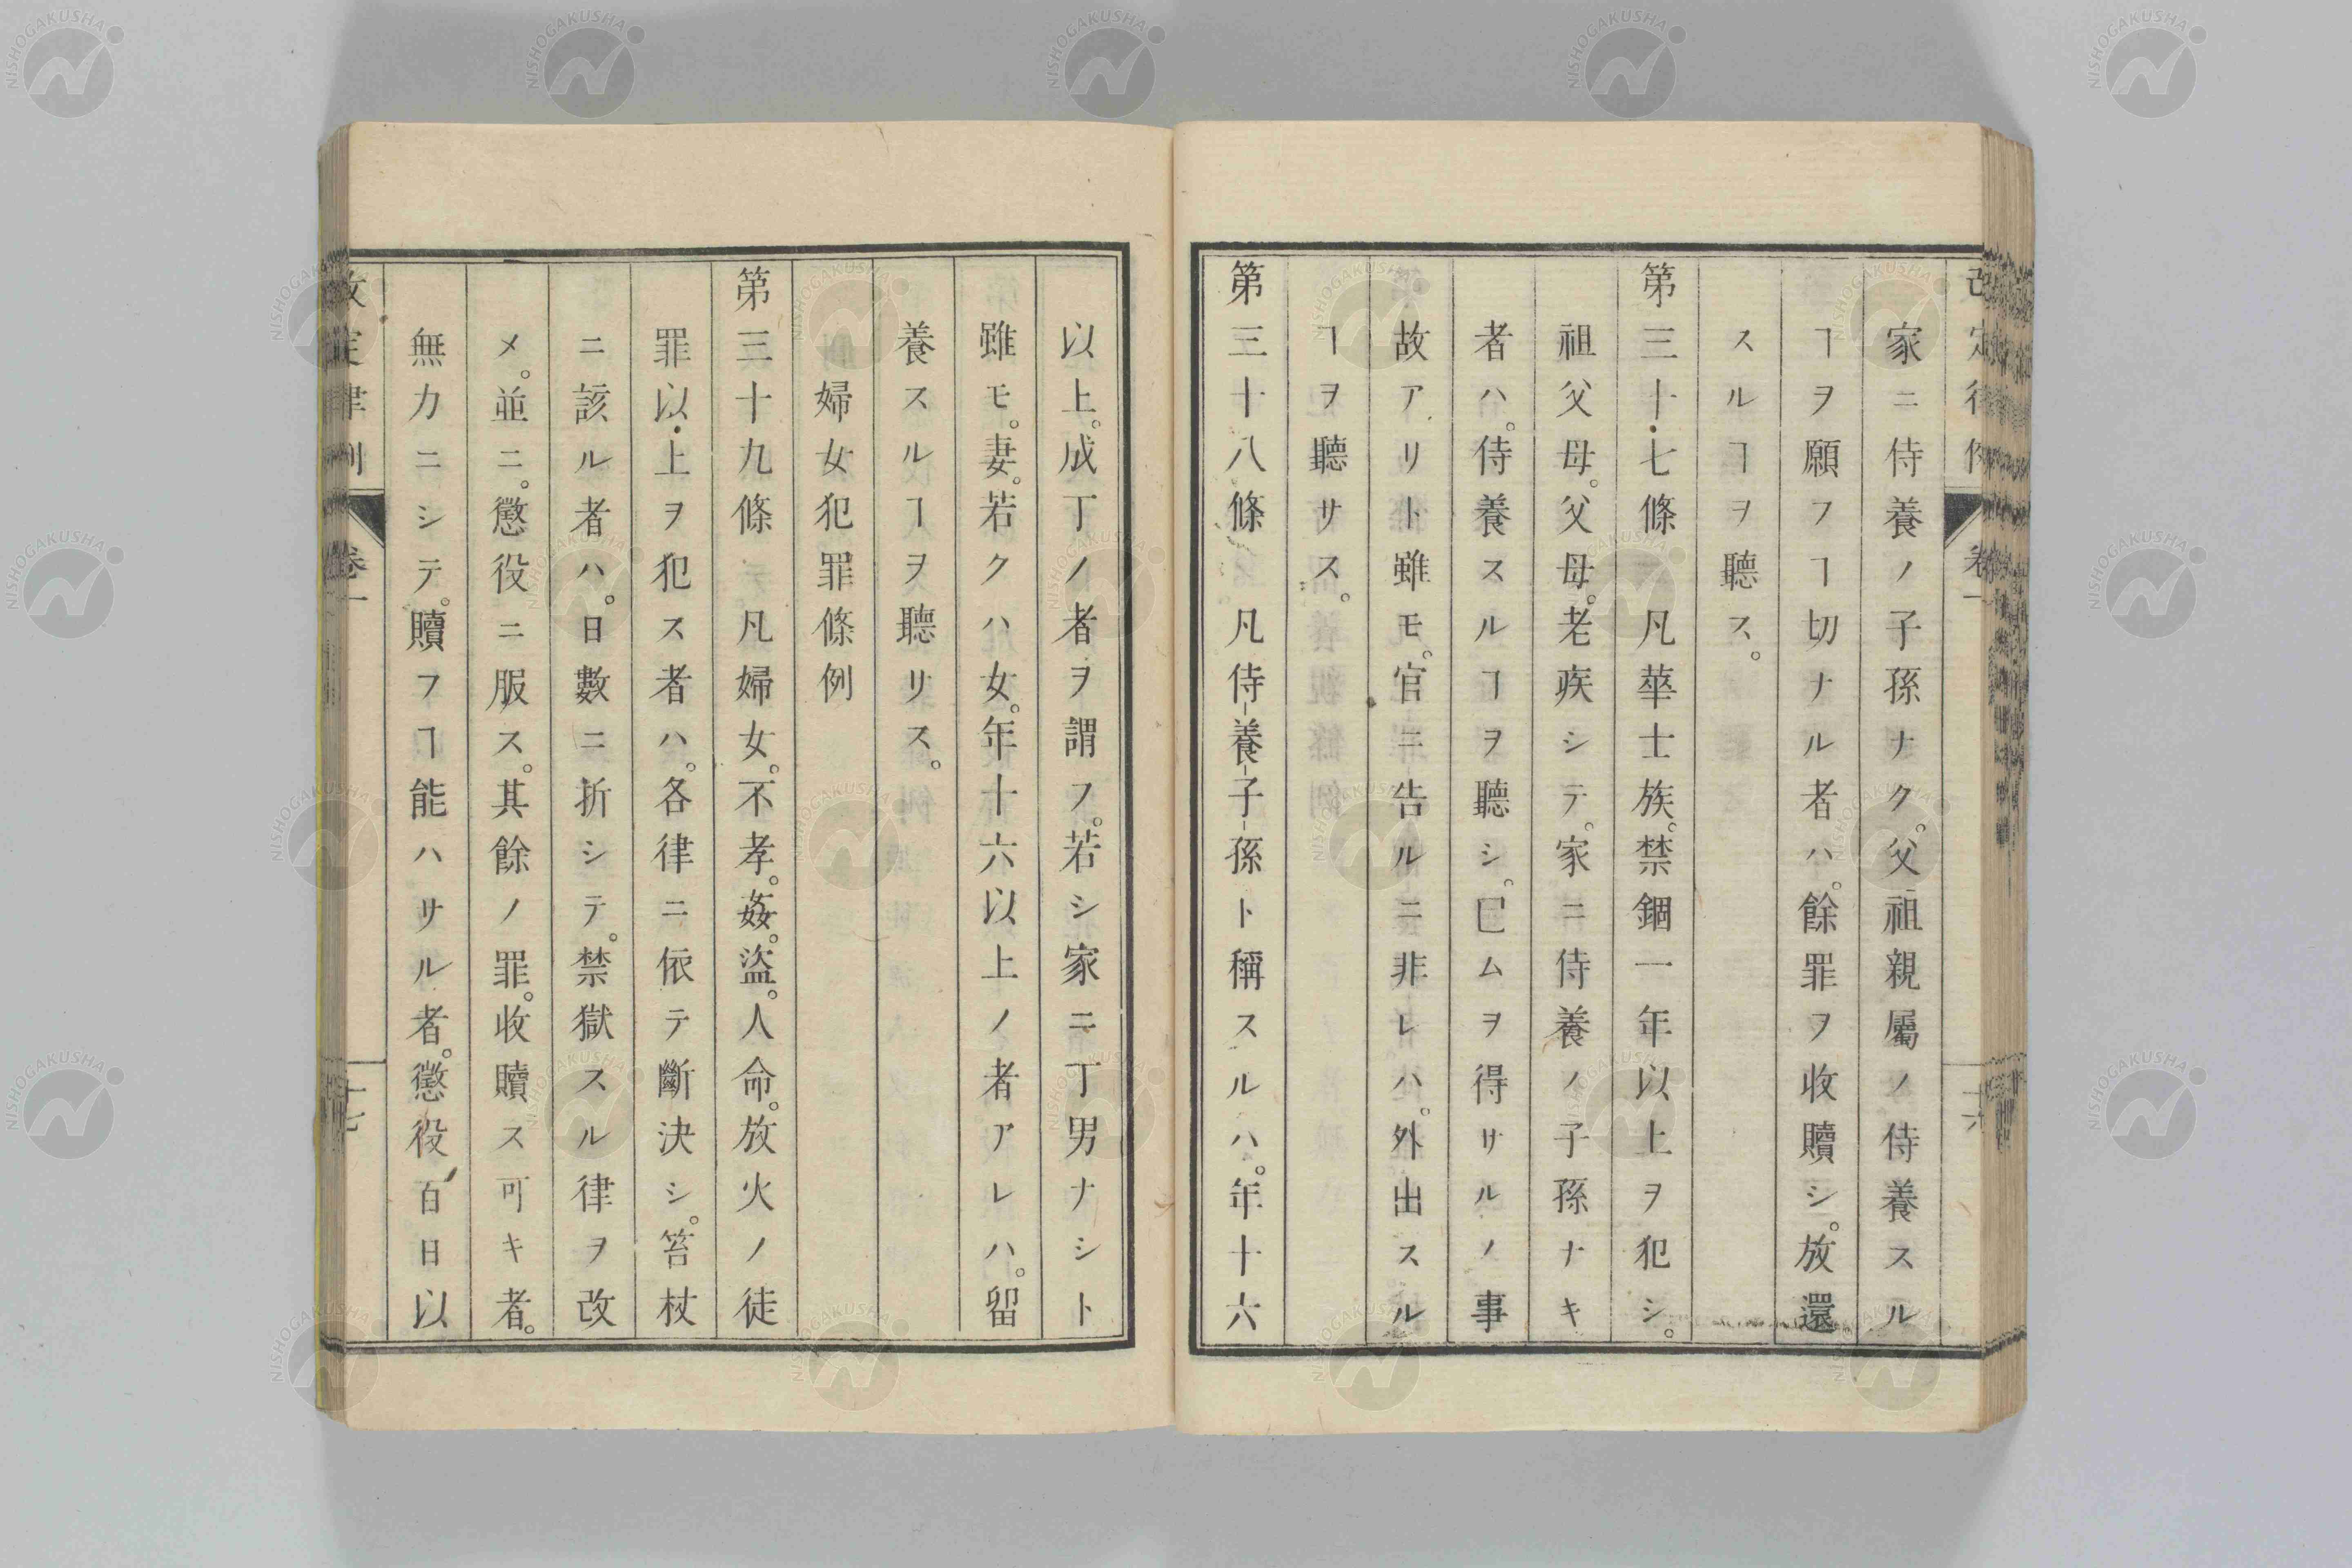 家ニ侍養ノ子孫ナク。父祖親屬ノ侍養スル
ヿヲ願フヿ切ナル者ハ。餘罪ヲ收贖シ。放還
スルヿヲ聽ス。
第三十七條 凡華士族。禁錮一年以上ヲ犯シ。
祖父母。父母。老疾シテ。家ニ侍養ノ子孫ナキ
者ハ。侍養スルヿヲ聽シ。已ムヲ得サルノ事
故アリト雖モ。官ニ告ルニ非レハ。外出スル
ヿヲ聽サス。
第三十八條 凡侍養子孫ト稱スルハ。年十六
以上。成丁ノ者ヲ謂フ。若シ家ニ丁男ナシト
雖モ。妻。若クハ女。年十六以上ノ者アレハ。留
養スルヿヲ聽サス。
婦女犯罪條例
第三十九條 凡婦女。不孝。姦。盜。人命。放火ノ徒
罪以上ヲ犯ス者ハ。各律ニ依テ斷決シ。笞杖
ニ該ル者ハ。日數ニ折シテ。禁獄スル律ヲ改
メ。並ニ。懲役ニ服ス。其餘ノ罪。收贖ス可キ者。
無力ニシテ。贖フヿ能ハサル者。懲役百日以
改定律例 卷一 十七
NISHOGAKUSHA